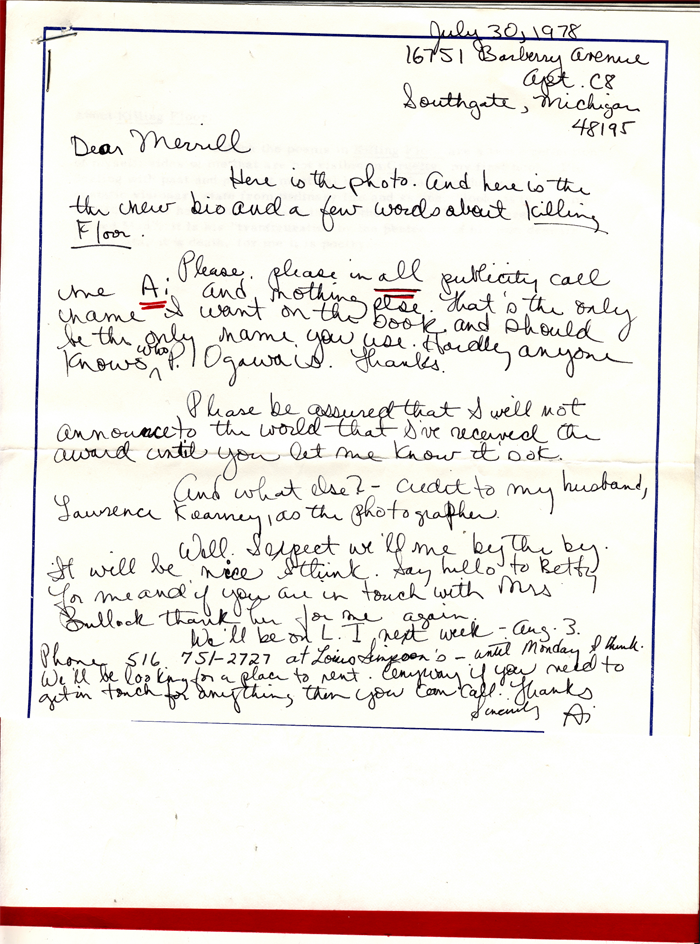 July 30, 1978
16751 Barberry Avenue
Apt. C8
Southgate, Michigan
48195
Dear Merrill
Here is the photo. And here is the
the new bio and a few words about Killing
Floor.
Please, please in all publicity call
me Ai and nothing else. That's the only
name I want on the book and should
be the only name you use. Hardly anyone
knows who P. Ogawa is. Thanks.
Please be assured that I will not
announce to the world that I've received the
award until you let me know it ook.
And what else? - credit to my husband,
Lawrence Kearney, as the photographer.
Well. I expect we'll me by the by.
It will be nice I think. Say hello to Betty
for me and if you are in touch with Mrs
Bullock thank her for me again.
We'll be on L. I. next week - Aug. 3.
Phone 516 751-2727 at Louis Simpson's - until Monday I think.
We'll be looking for a place to rent. Anyway if you need to
get in touch for anything, then you can call. Thanks
Sincerely Ai